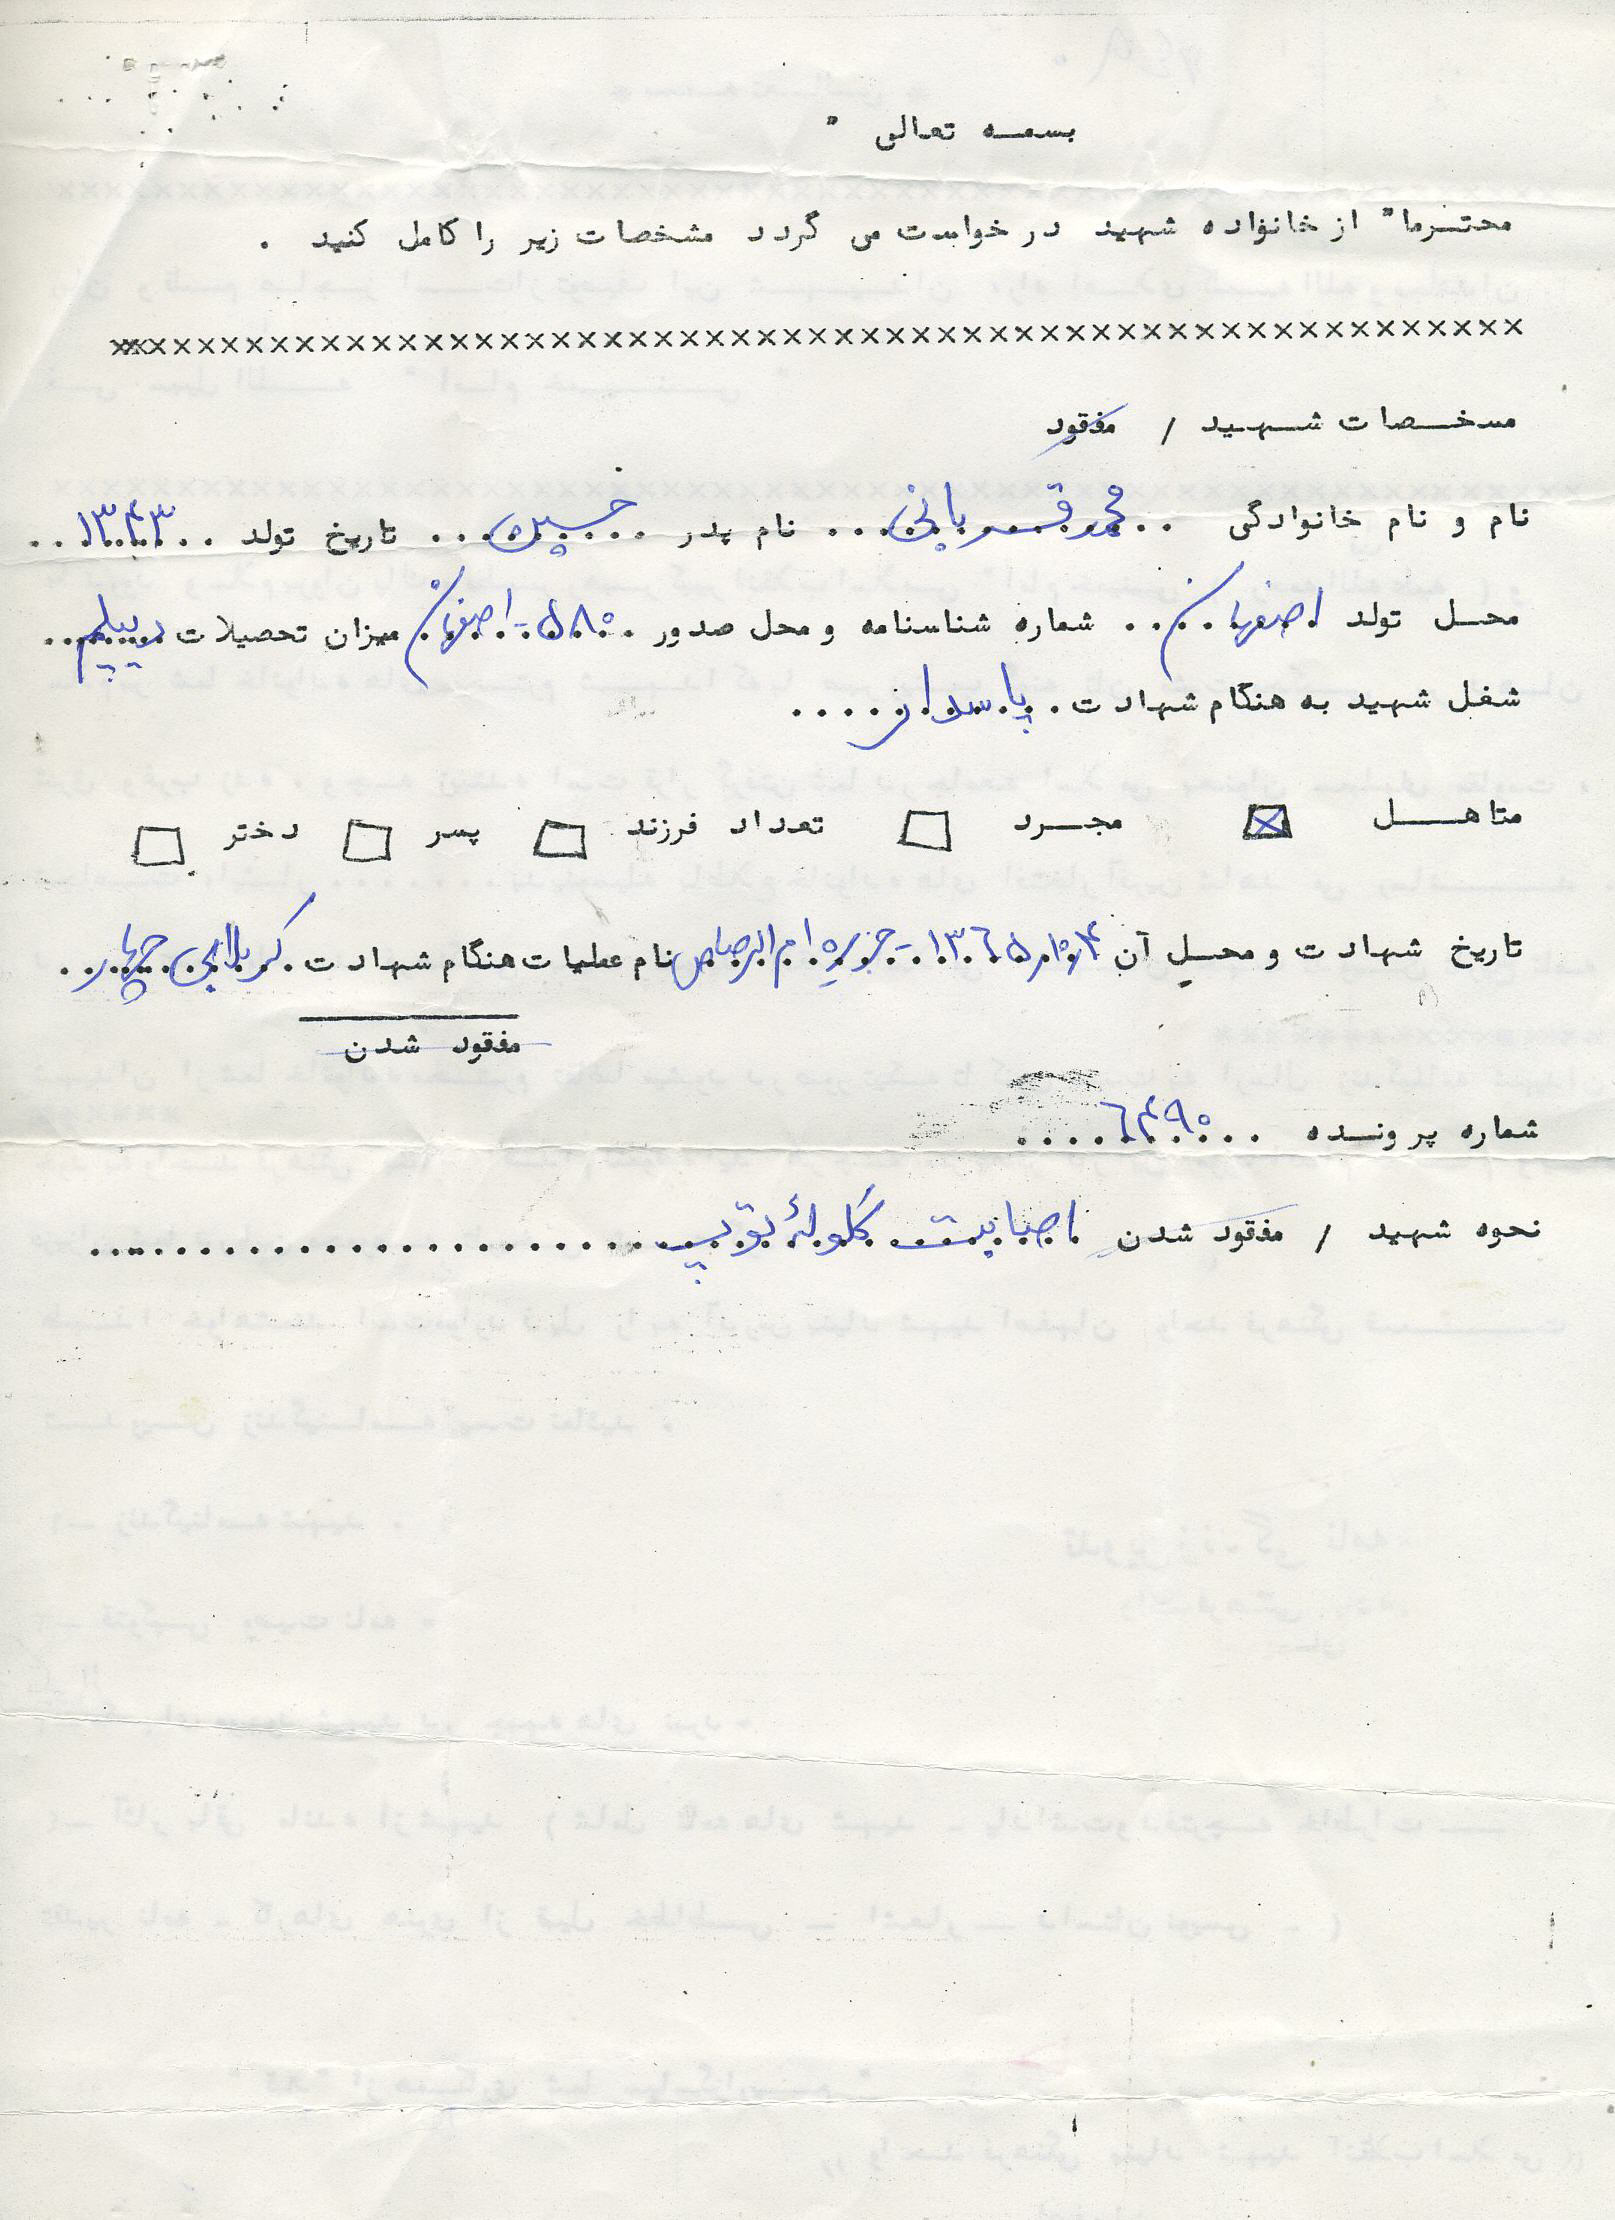 بسمه تعالی "
محترما" از خانواده شهید درخواست می گردد مشخصات زیر را کامل کنید .
××××××××××××××××××××××××××××××××××××××××××××××××××××××××
مسخصات شهید / مفقود
نام و نام خانوادگی .. محمد قربانی ... نام پدر ... حسین ... تاریخ تولد .. ۱۳۴۳ ...
محل تولد اصفهان .. شماره شناسنامه و محل صدور . ۵۸۰ - اصفهان میزان تحصیلات دیپلم ...
شغل شهید به هنگام شهادت . پاسدار .....
متاهل ☒ مجرد ☐ تعداد فرزند ☐ پسر ☐ دختر ☐
تاریخ شهادت و محل آن ۱۳۶۵/۱۰/۴ - جزیره ام الرصاص نام عملیات هنگام شهادت کربلای چهار ..
مفقود شدن
شماره پرونده ... ۶۴۹۰ .....
نحوه شهید / مفقود شدن اصابت گلوله توپ ........................